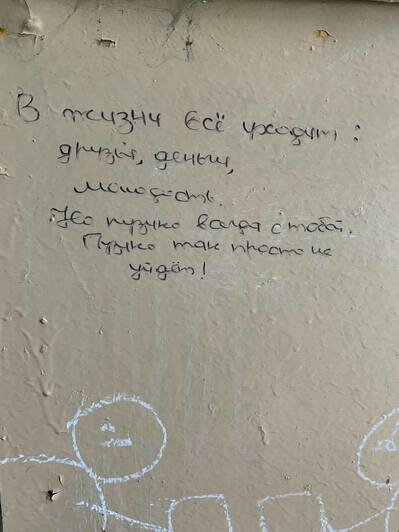 В жизни всё уходит:
друзья, деньги,
молодость.
Но пузико всегда с тобой.
Пузико так просто не
уйдёт!